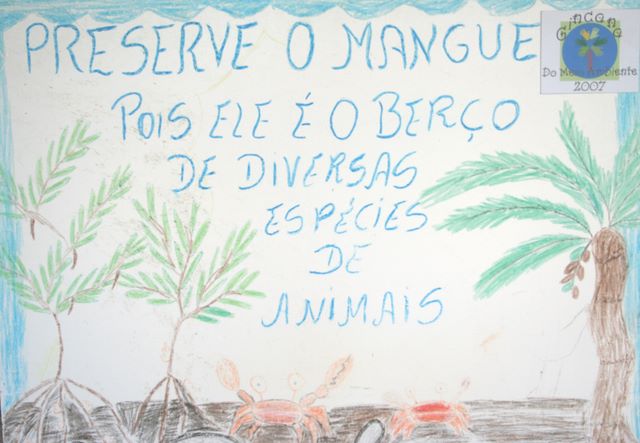 PRESERVE O MANGUE
POIS ELE É O BERÇO
DE DIVERSAS
ESPÉCIES
DE
ANIMAIS
Gincana
Do Meio Ambiente
2007